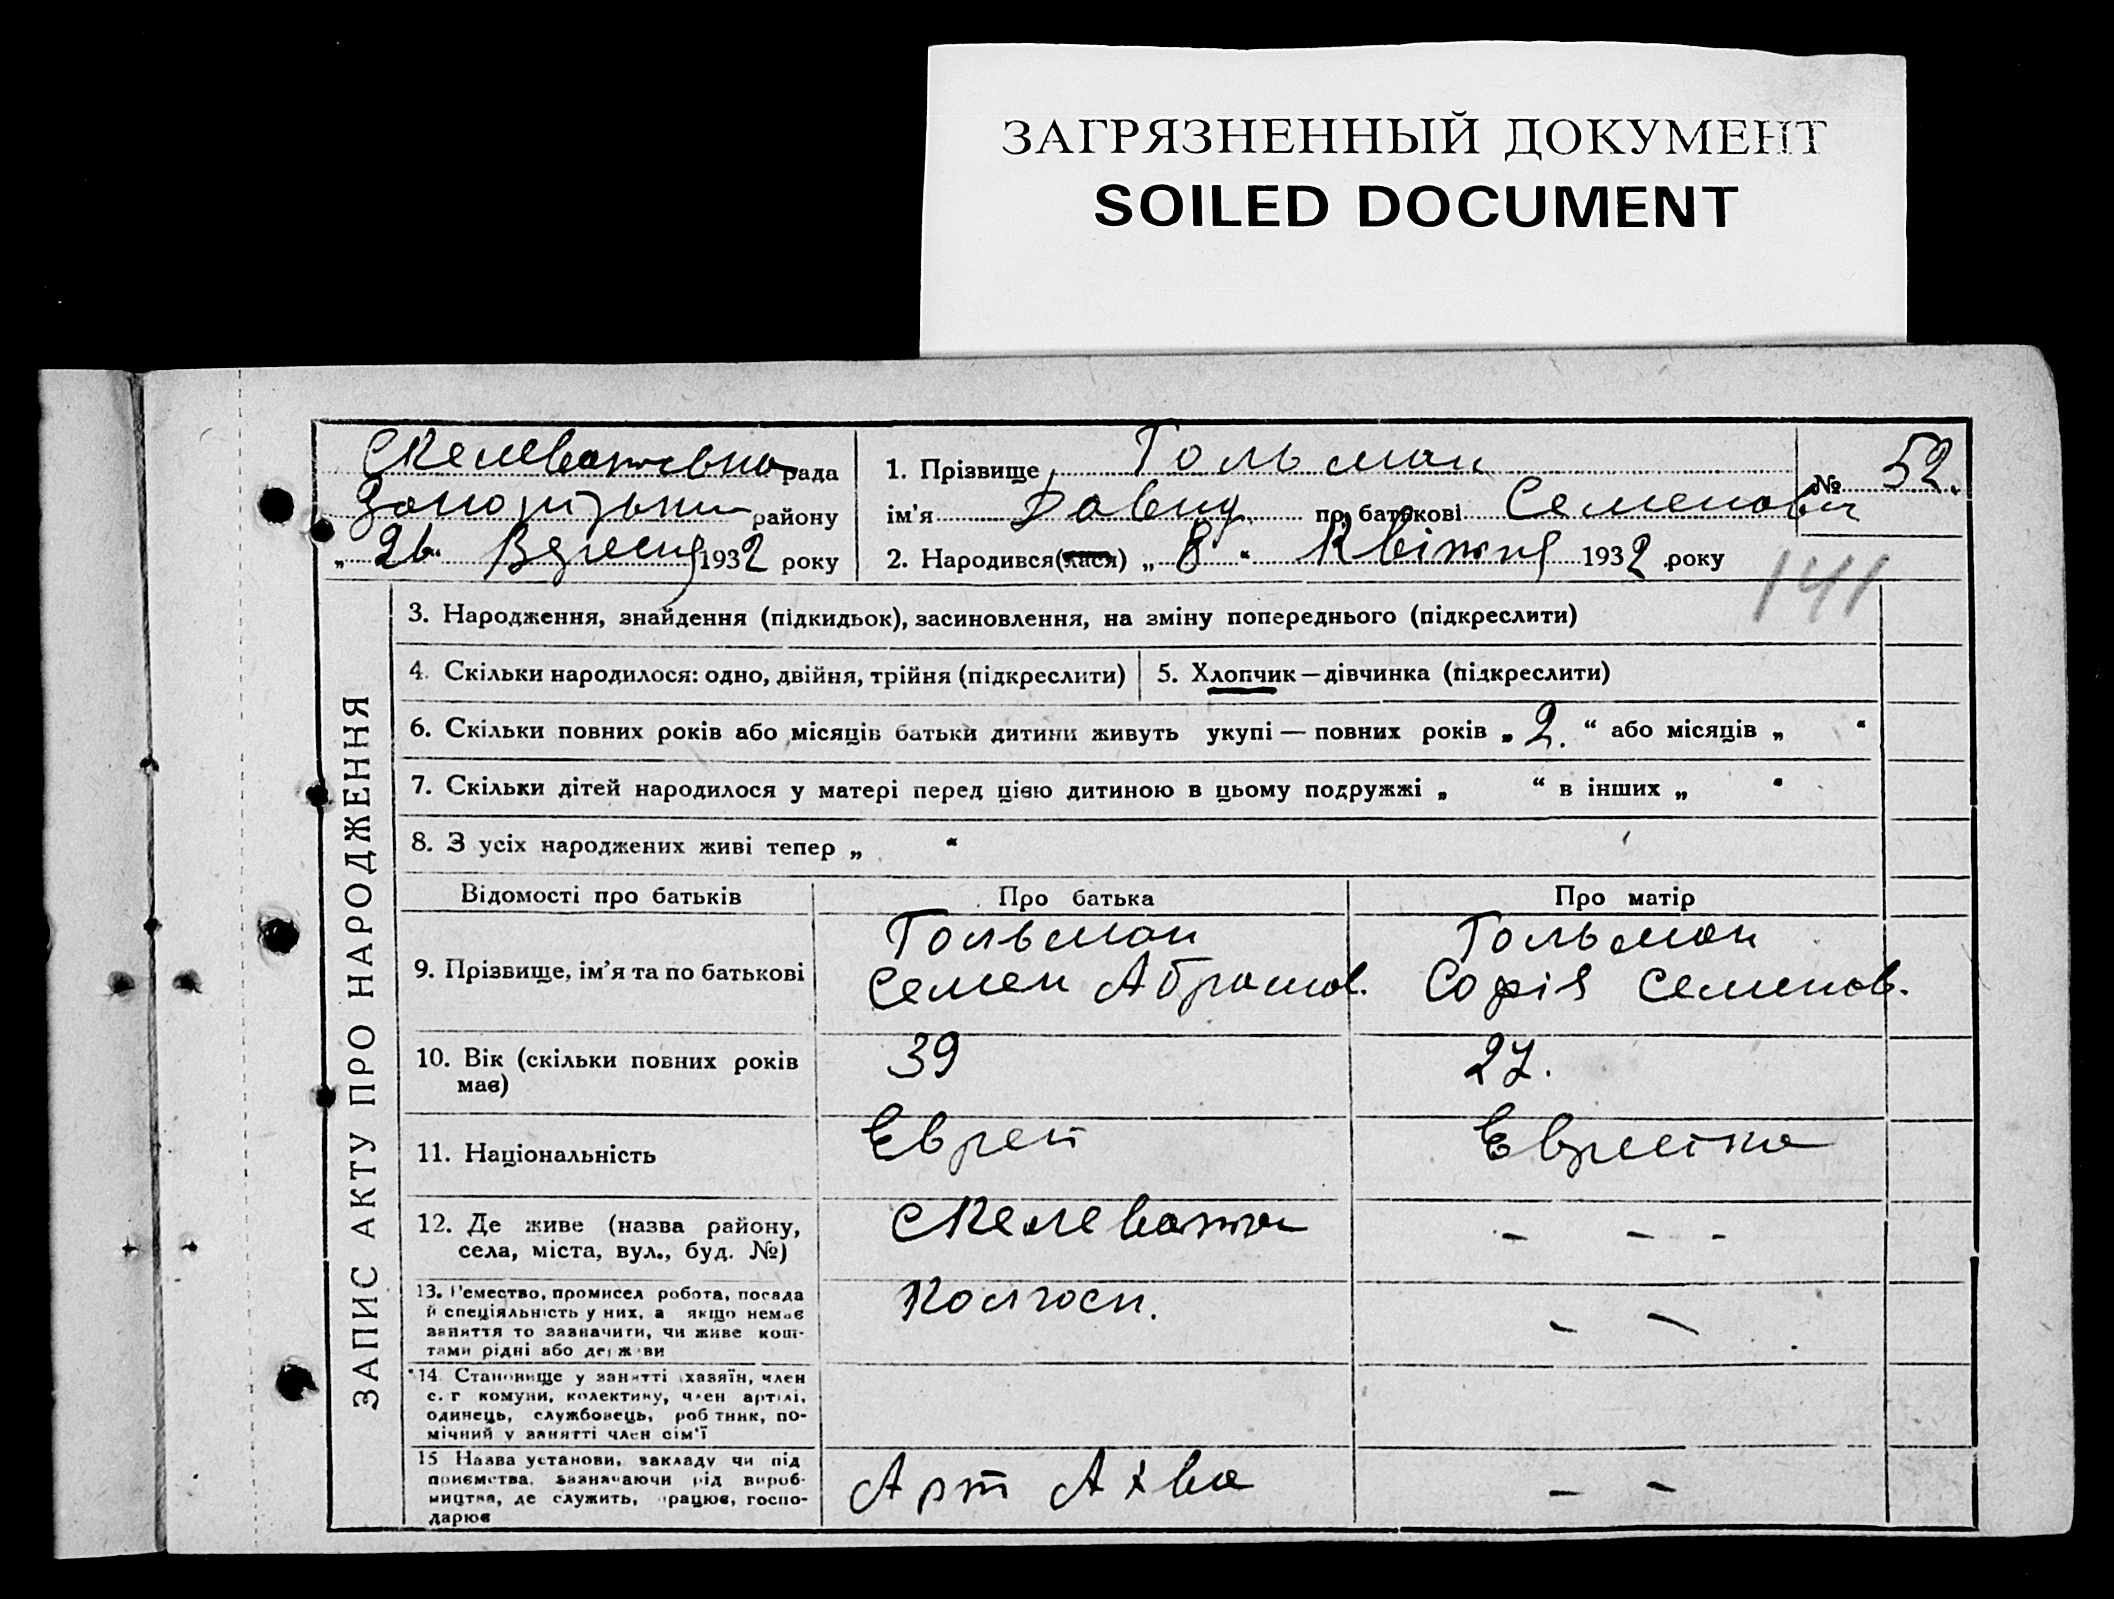 ЗАГРЯЗНЕННЫЙ ДОКУМЕНТ
SOILED DOCUMENT
Скелеватовна рада
району
„ 26 “ Вересня 1932 року
1. Прізвище Гольман
ім'я Давид по батькові Семенович
№ 52.
2. Народився(лася) „ 8 “ Квітня 1932 року
141
ЗАПИС АКТУ ПРО НАРОДЖЕННЯ
3. Народження, знайдення (підкидьок), засиновлення, на зміну попереднього (підкреслити)
4. Скільки народилося: одно, двійня, трійня (підкреслити)
5. Хлопчик — дівчинка (підкреслити)
6. Скільки повних років або місяців батьки дитини живуть укупі — повних років „ 2. “ або місяців „ “
7. Скільки дітей народилося у матері перед цією дитиною в цьому подружжі „ “ в інших „ “
8. З усіх народжених живі тепер „ “
Відомості про батьків
Про батька
Про матір
9. Прізвище, ім'я та по батькові
Гольман
Семен Абрамов.
Гольман
Софія Семенов.
10. Вік (скільки повних років
має)
39
27.
11. Національність
Еврей
Еврейка
12. Де живе (назва району,
села, міста, вул., буд. №)
Скелеватка
- - -
13. Ремество, промисел робота, посада
й спеціяльність у них, а якщо немає
заняття то зазначити, чи живе кош-
тами рідні або держави
Колгосп.
- -
14. Становище у занятті хазяїн, член
с.-г комуни, колективу, член артілі,
одинець, службовець, робітник, по-
мічний у занятті член сім'ї
15 Назва установи, закладу чи під
приємства, зазначаючи рід вироб-
ництва, де служить, працює, госпо-
дарює
Арт Ахва
- -